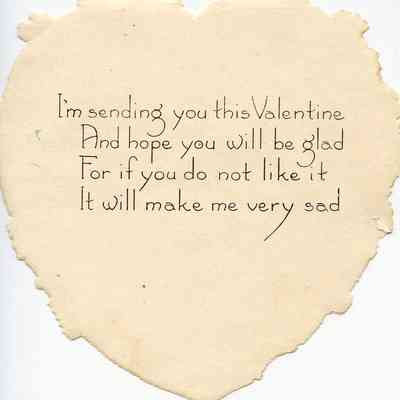 I'm sending you this Valentine
And hope you will be glad
For if you do not like it
It will make me very sad